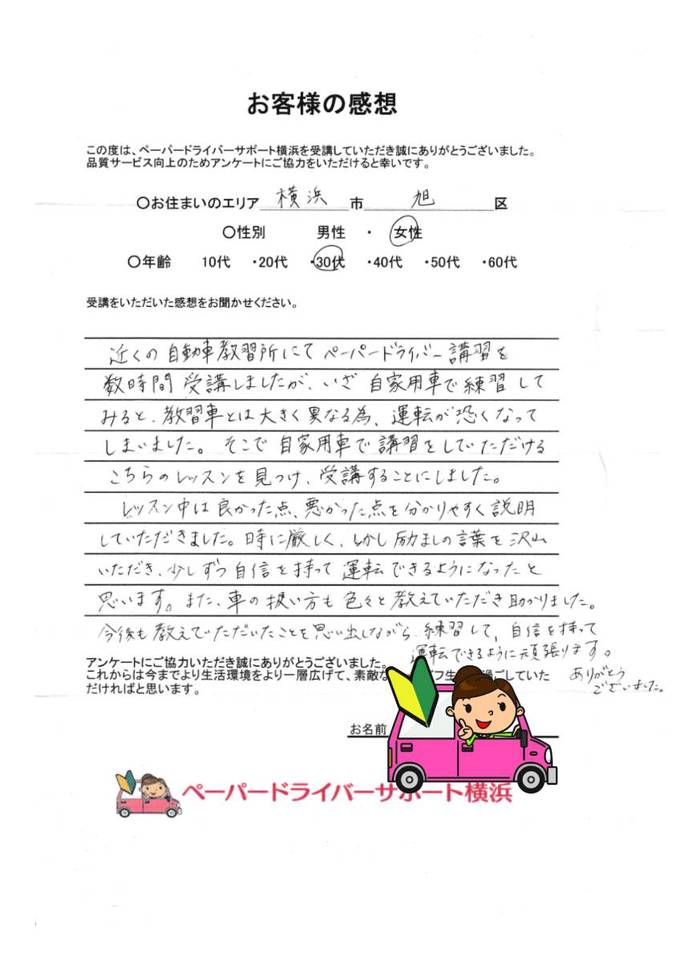 お客様の感想
この度は、ペーパードライバーサポート横浜を受講していただき誠にありがとうございました。
品質サービス向上のためアンケートにご協力をいただけると幸いです。
〇お住まいのエリア 横浜 市 旭 区
〇性別 男性 ・ 女性
〇年齢 10代 ・20代 ・30代 ・40代 ・50代 ・60代
受講をいただいた感想をお聞かせください。
近くの自動車教習所にてペーパードライバー講習を
数時間受講しましたが、いざ自家用車で練習して
みると、教習車とは大きく異なる為、運転が恐くなって
しまいました。そこで自家用車で講習をしていただける
こちらのレッスンを見つけ、受講することにしました。
レッスン中は良かった点、悪かった点を分かりやすく説明
していただきました。時に厳しく、しかし励ましの言葉を沢山
いただき、少しずつ自信を持って運転できるようになったと
思います。また、車の扱い方も色々と教えていただき助かりました。
今後も教えていただいたことを思い出しながら、練習して、自信を持って
運転できるように頑張ります。
ありがとう
ございました。
アンケートにご協力いただき誠にありがとうございました。
これからは今までより生活環境をより一層広げて、素敵な フ生 過ごしていた
だければと思います。
お名前
ペーパードライバーサポート横浜